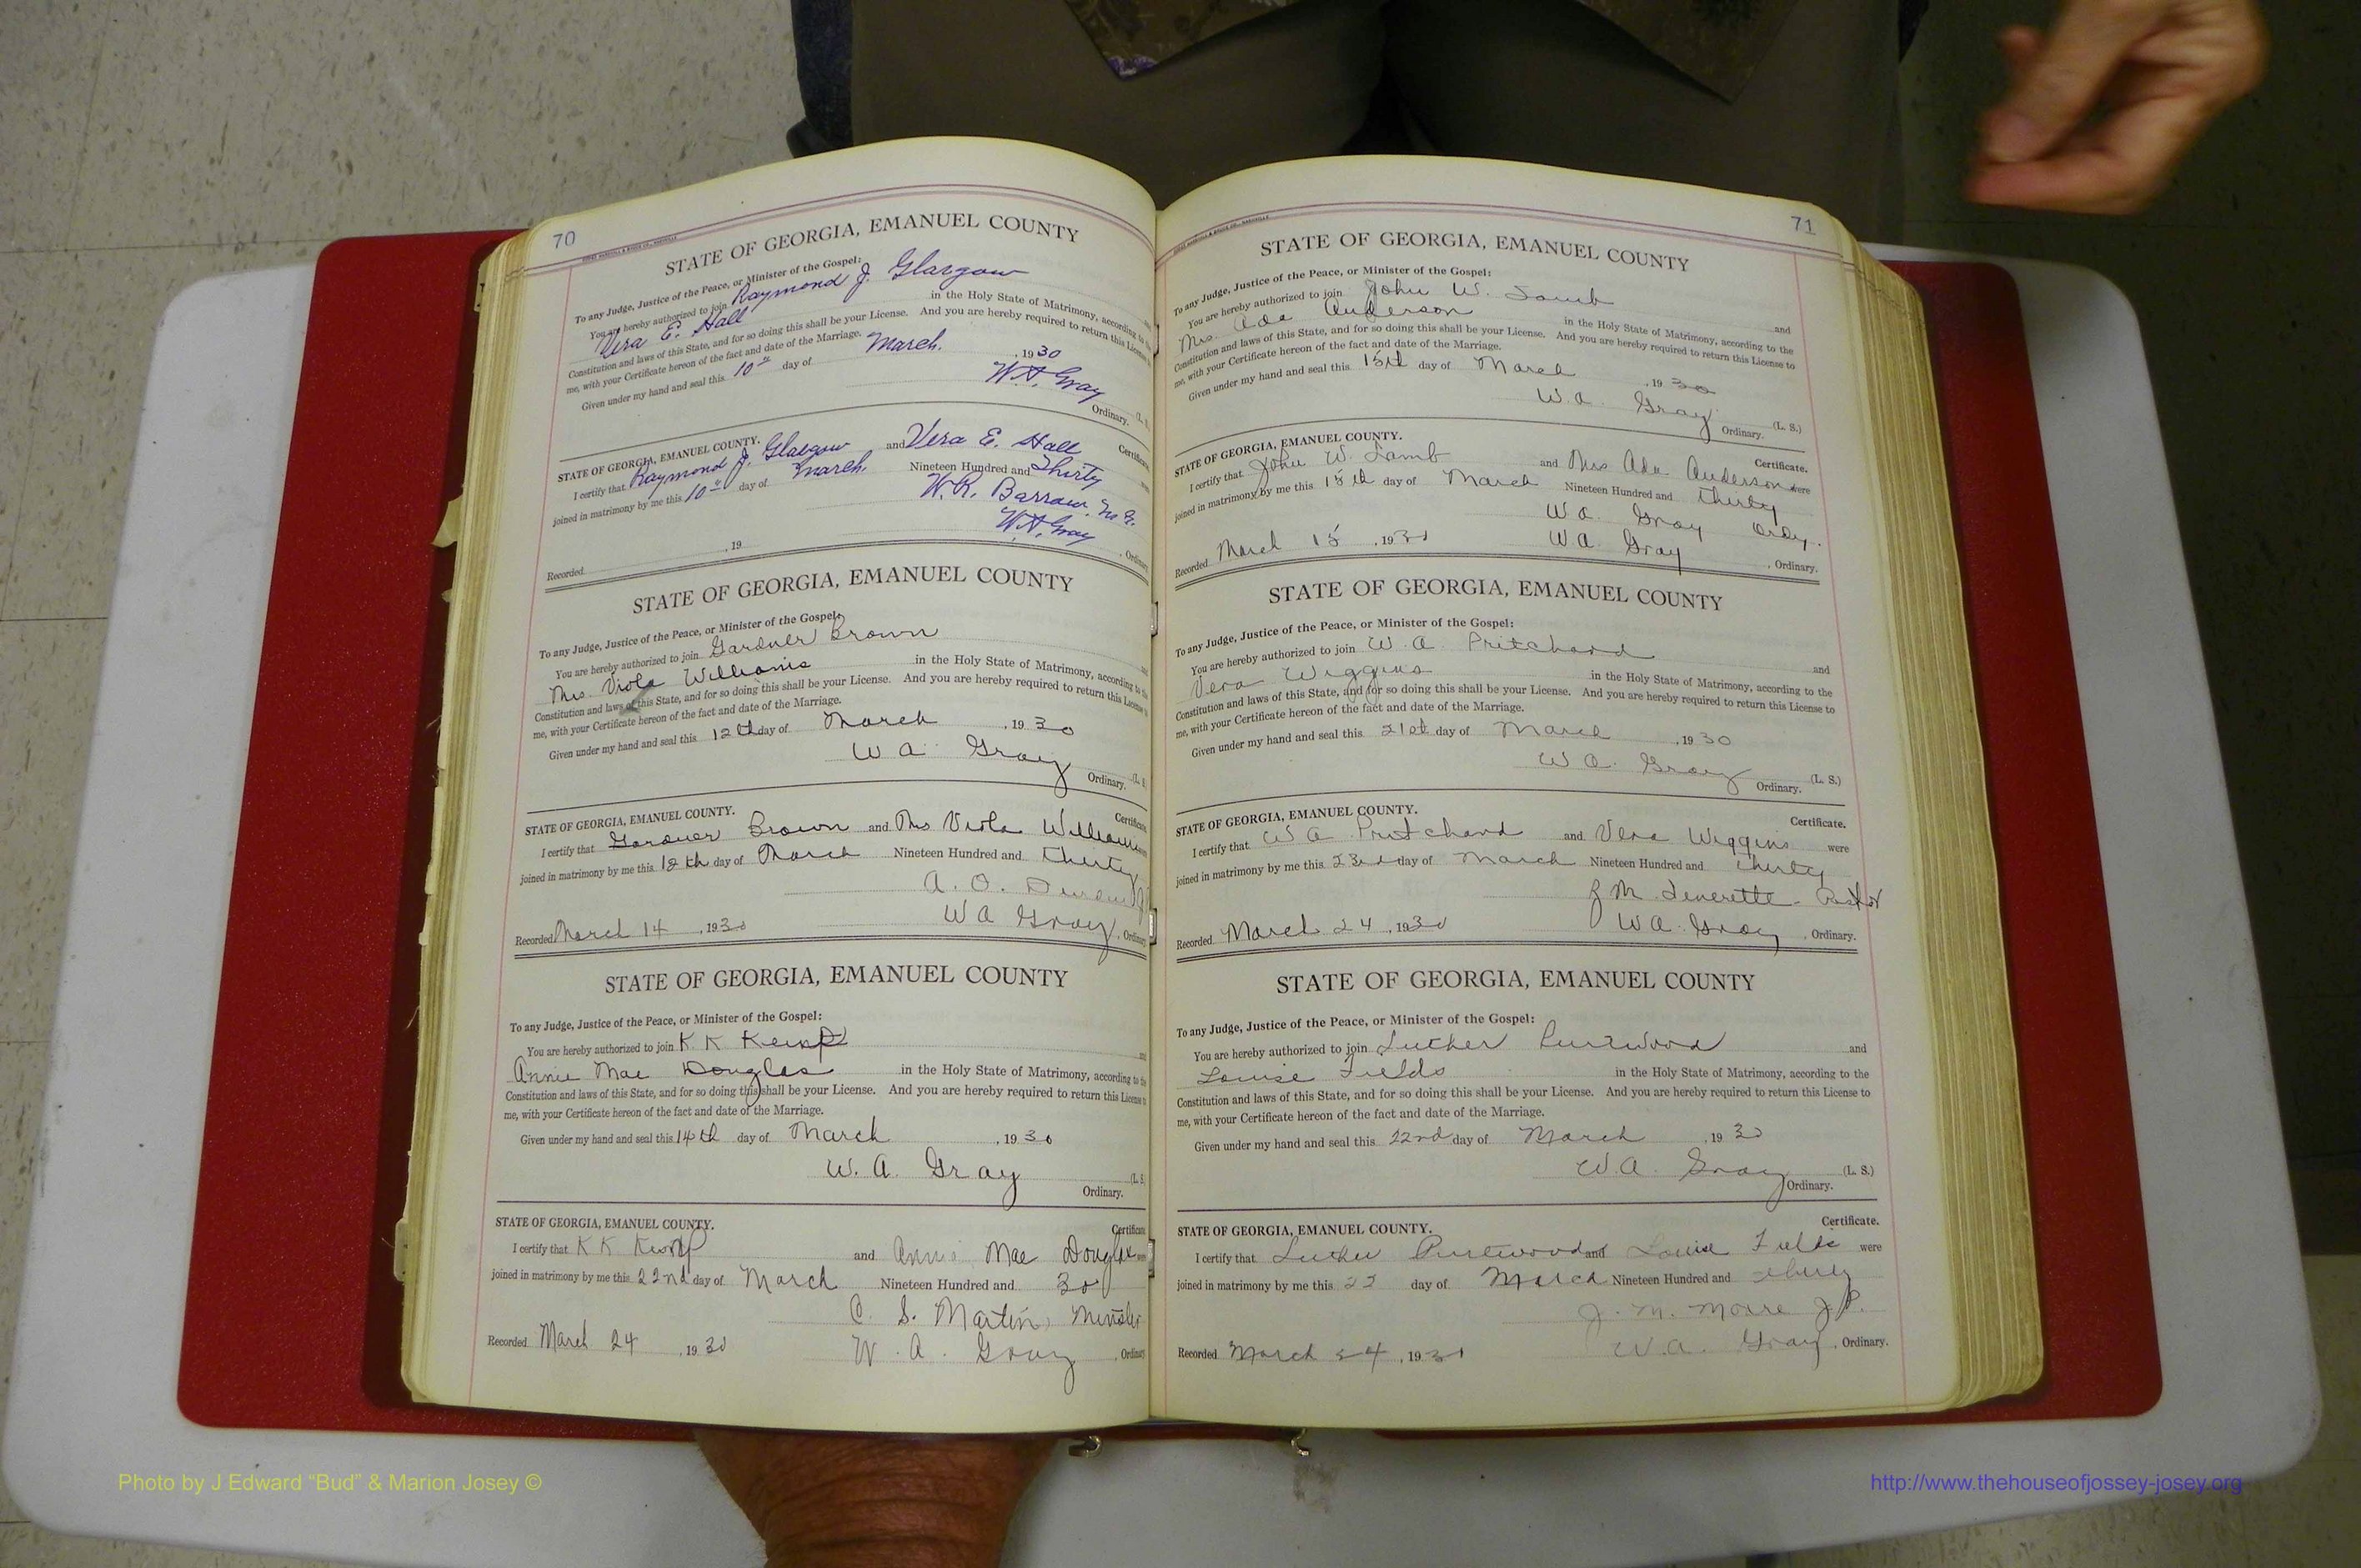 70
STATE OF GEORGIA, EMANUEL COUNTY
To any Judge, Justice of the Peace, or Minister of the Gospel:
You are hereby authorized to join Raymond J. Glasgow
Vera E. Hall in the Holy State of Matrimony, according to the
Constitution and laws of this State, and for so doing this shall be your License. And you are hereby required to return this License
me, with your Certificate hereon of the fact and date of the Marriage.
Given under my hand and seal this 10th day of March. , 1930
W.A. Gray
Ordinary. (L. S.
STATE OF GEORGIA, EMANUEL COUNTY. Certificate
I certify that Raymond J. Glasgow and Vera E. Hall
joined in matrimony by me this 10th day of March. Nineteen Hundred and Thirty
W. R. Barrow, M. G.
W.A. Gray
Recorded , 19 , Ordinary
STATE OF GEORGIA, EMANUEL COUNTY
To any Judge, Justice of the Peace, or Minister of the Gospel:
You are hereby authorized to join Gardner Brown and
Mrs. Viola Williams in the Holy State of Matrimony, according to the
Constitution and laws of this State, and for so doing this shall be your License. And you are hereby required to return this License to
me, with your Certificate hereon of the fact and date of the Marriage.
Given under my hand and seal this 12th day of March , 1930
W A Gray
Ordinary. (L. S
STATE OF GEORGIA, EMANUEL COUNTY. Certificate
I certify that Gardner Brown and Mrs Viola Williams
joined in matrimony by me this 12th day of March Nineteen Hundred and thirty
A. O.
W A Gray
Recorded March 14 , 1930 , Ordinary
STATE OF GEORGIA, EMANUEL COUNTY
To any Judge, Justice of the Peace, or Minister of the Gospel:
You are hereby authorized to join K K Kemp and
Annie Mae Douglas in the Holy State of Matrimony, according to the
Constitution and laws of this State, and for so doing this shall be your License. And you are hereby required to return this License to
me, with your Certificate hereon of the fact and date of the Marriage.
Given under my hand and seal this 14th day of March , 1930
W. A. Gray
(L. S
Ordinary.
STATE OF GEORGIA, EMANUEL COUNTY. Certificate
I certify that K K Kemp and Annie Mae Douglas were
joined in matrimony by me this 22nd day of March Nineteen Hundred and 30
C. S. Martin, Minister
Recorded March 24 , 1930 W. A. Gray , Ordinary
71
STATE OF GEORGIA, EMANUEL COUNTY
To any Judge, Justice of the Peace, or Minister of the Gospel:
You are hereby authorized to join John W. Lamb and
Mrs. Ada Anderson in the Holy State of Matrimony, according to the
Constitution and laws of this State, and for so doing this shall be your License. And you are hereby required to return this License to
me, with your Certificate hereon of the fact and date of the Marriage.
Given under my hand and seal this 15th day of March , 1930
W. A. Gray (L. S.)
Ordinary.
STATE OF GEORGIA, EMANUEL COUNTY. Certificate.
I certify that John W. Lamb and Mrs Ada Anderson were
joined in matrimony by me this 15th day of March Nineteen Hundred and thirty
W A. Gray Ordy.
Recorded March 15 , 1930 W. A. Gray , Ordinary.
STATE OF GEORGIA, EMANUEL COUNTY
To any Judge, Justice of the Peace, or Minister of the Gospel:
You are hereby authorized to join W. A Pritchard and
Vera Wiggins in the Holy State of Matrimony, according to the
Constitution and laws of this State, and for so doing this shall be your License. And you are hereby required to return this License to
me, with your Certificate hereon of the fact and date of the Marriage.
Given under my hand and seal this 21st day of March , 1930
W A. Gray (L. S.)
Ordinary.
STATE OF GEORGIA, EMANUEL COUNTY. Certificate.
I certify that W A Pritchard and Vera Wiggins were
joined in matrimony by me this 23rd day of March Nineteen Hundred and thirty
J M. Leverette - Pastor
Recorded March 24 , 1930 W A. Gray , Ordinary.
STATE OF GEORGIA, EMANUEL COUNTY
To any Judge, Justice of the Peace, or Minister of the Gospel:
You are hereby authorized to join Luther and
Louise Fields in the Holy State of Matrimony, according to the
Constitution and laws of this State, and for so doing this shall be your License. And you are hereby required to return this License to
me, with your Certificate hereon of the fact and date of the Marriage.
Given under my hand and seal this 22nd day of March , 1930
W. A. Gray (L. S.)
Ordinary.
STATE OF GEORGIA, EMANUEL COUNTY. Certificate.
I certify that Luther and Louise Fields were
joined in matrimony by me this 22 day of March Nineteen Hundred and thirty
J. M. Moore J.P.
Recorded March 24 , 1930 W. A. Gray , Ordinary.
Photo by J Edward “Bud” & Marion Josey ©
http://www.thehouseofjossey-josey.org